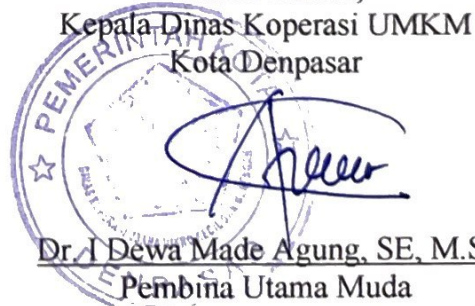 Kepala Dinas Koperasi UMKM
Kota Denpasar
PEMERINTAH KOTA
DENPASAR
Dr. I Dewa Made Agung, SE, M.S
Pembina Utama Muda